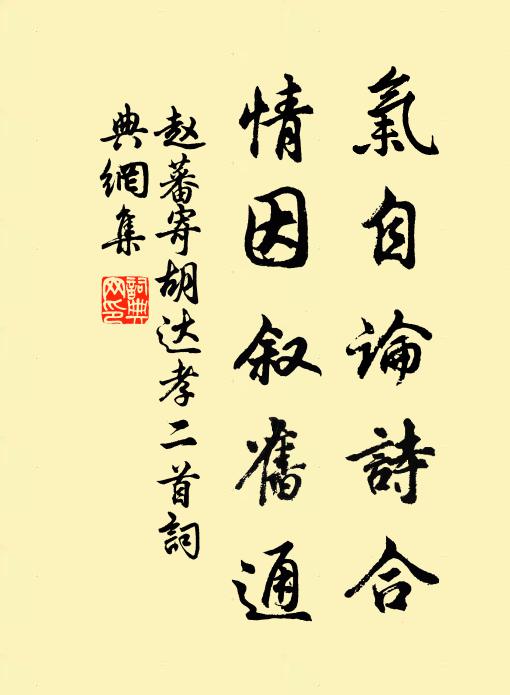 氣自論詩合
情因叙舊通
赵蕃寄胡达孝二首詞
典網集
詞典网印